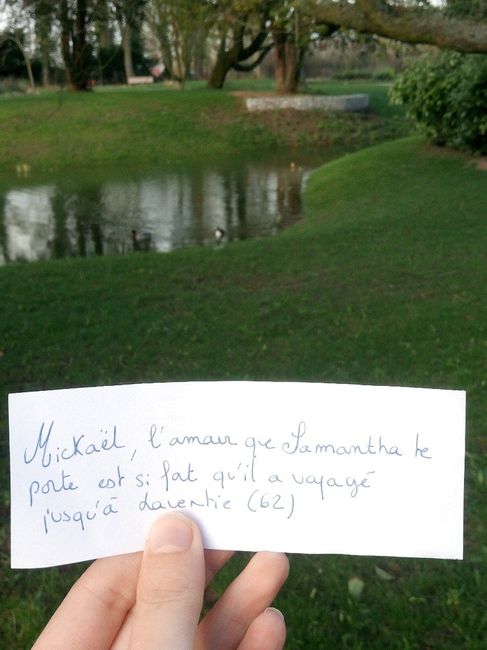 Mickaël, l'amour que Samantha te
porte est si fort qu'il a voyagé
jusqu'à Laventie (62)